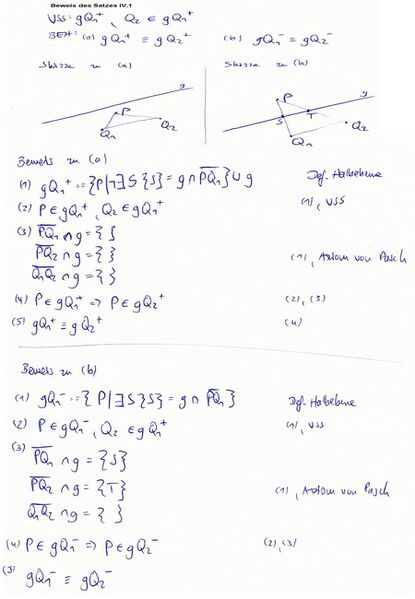 Beweis des Satzes IV.1
VSS: gQ₁⁺, Q₂ ∈ gQ₁⁺
BEH: (a) gQ₁⁺ ≡ gQ₂⁺ (b) gQ₁⁻ ≡ gQ₂⁻
Skizze zu (a) Skizze zu (b)
g
P
Q₁
Q₂
g
P
S
T
Q₂
Q₁
Beweis zu (a)
(1) gQ₁⁺ := {P|¬∃S {S} = g ∩ P̅Q̅₁} ∪ g Def. Halbebene
(2) P ∈ gQ₁⁺, Q₂ ∈ gQ₁⁺ (1), VSS
(3) P̅Q̅₁ ∩ g = { }
P̅Q̅₂ ∩ g = { } (1), Axiom von Pasch
Q̅₁Q̅₂ ∩ g = { }
(4) P ∈ gQ₁⁺ ⇒ P ∈ gQ₂⁺ (2), (3)
(5) gQ₁⁺ ≡ gQ₂⁺ (4)
Beweis zu (b)
(1) gQ₁⁻ := {P|∃S {S} = g ∩ P̅Q̅₁} Def. Halbebene
(2) P ∈ gQ₁⁻, Q₂ ∈ gQ₁⁺ (1), VSS
(3)
P̅Q̅₁ ∩ g = {S}
P̅Q̅₂ ∩ g = {T} (1), Axiom von Pasch
Q̅₁Q̅₂ ∩ g = { }
(4) P ∈ gQ₁⁻ ⇒ P ∈ gQ₂⁻ (2), (3)
(5) gQ₁⁻ ≡ gQ₂⁻